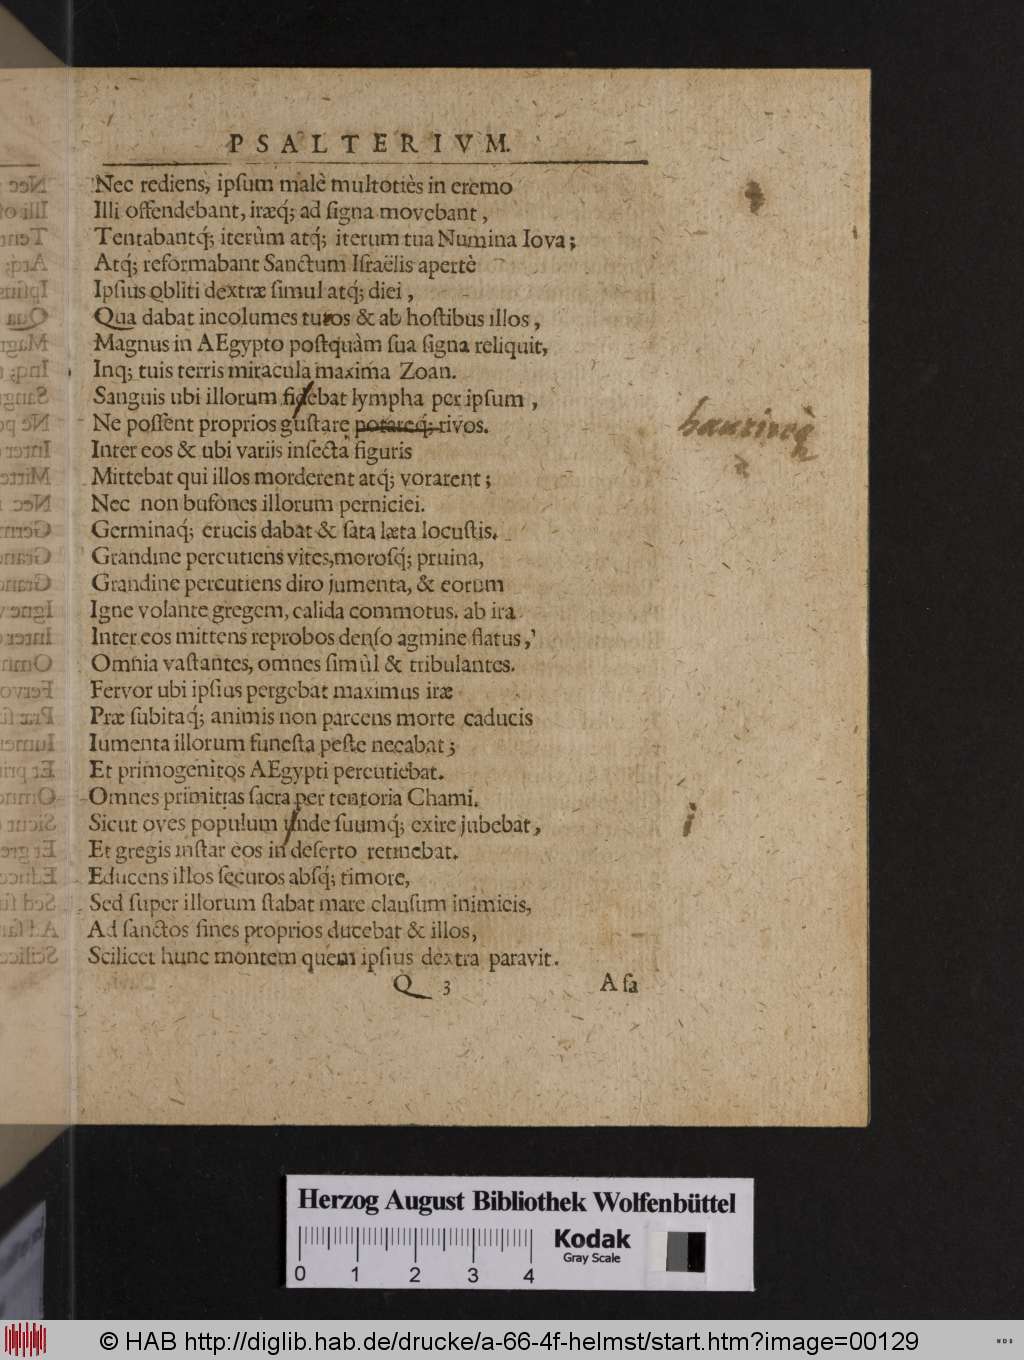 PSALTERIVM.
Nec rediens, ipſum malè multotiès in eremo
Illi offendebant, iræq́; ad ſigna movebant,
Tentabantq́; iterùm atq́; iterum tua Numina Iova;
Atq́; reformabant Sanctum Iſraëlis apertè
Ipſius obliti dextræ ſimul atq́; diei,
Qua dabat incolumes tutos & ab hoſtibus illos,
Magnus in AEgypto poſtquàm ſua ſigna reliquit,
Inq; tuis terris miracula maxima Zoan.
Sanguis ubi illorum debat lympha per ipſum,
Ne poſſent proprios guſtare potareq́; rivos.
haurireq́
Inter eos & ubi variis inſecta figuris
Mittebat qui illos morderent atq́; vorarent;
Nec non bufones illorum perniciei.
Germinaq́; erucis dabat & ſata læta locuſtis.
Grandine percutiens vites, moroſq́; pruina,
Grandine percutiens diro jumenta, & eorum
Igne volante gregem, calida commotus. ab ira
Inter eos mittens reprobos denſo agmine flatus,
Omnia vaſtantes, omnes ſimùl & tribulantes.
Fervor ubi ipſius pergebat maximus iræ
Præ ſubitaq́; animis non parcens morte caducis
Iumenta illorum funeſta peſte necabat;
Et primogenitos AEgypti percutiebat.
Omnes primitias ſacra per tentoria Chami.
Sicut oves populum ynde ſuumq́; exire jubebat,
i
Et gregis inſtar eos in deſerto retinebat.
Educens illos ſecuros abſq́; timore,
Sed ſuper illorum ſtabat mare clauſum inimicis,
Ad ſanctos fines proprios ducebat & illos,
Scilicet hunc montem quem ipſius dextra paravit.
Q 3 Aſa
Herzog August Bibliothek Wolfenbüttel
0 1 2 3 4
Kodak
Gray Scale
© HAB http://diglib.hab.de/drucke/a-66-4f-helmst/start.htm?image=00129